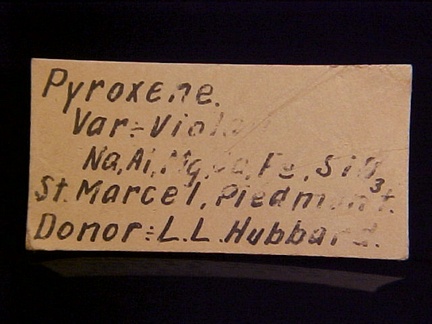 Pyroxene.
Var:- Viola
Na, Al, Mg, Ca, Fe, SiO3
St. Marcel, Piedmont.
Donor:- L.L. Hubbard.